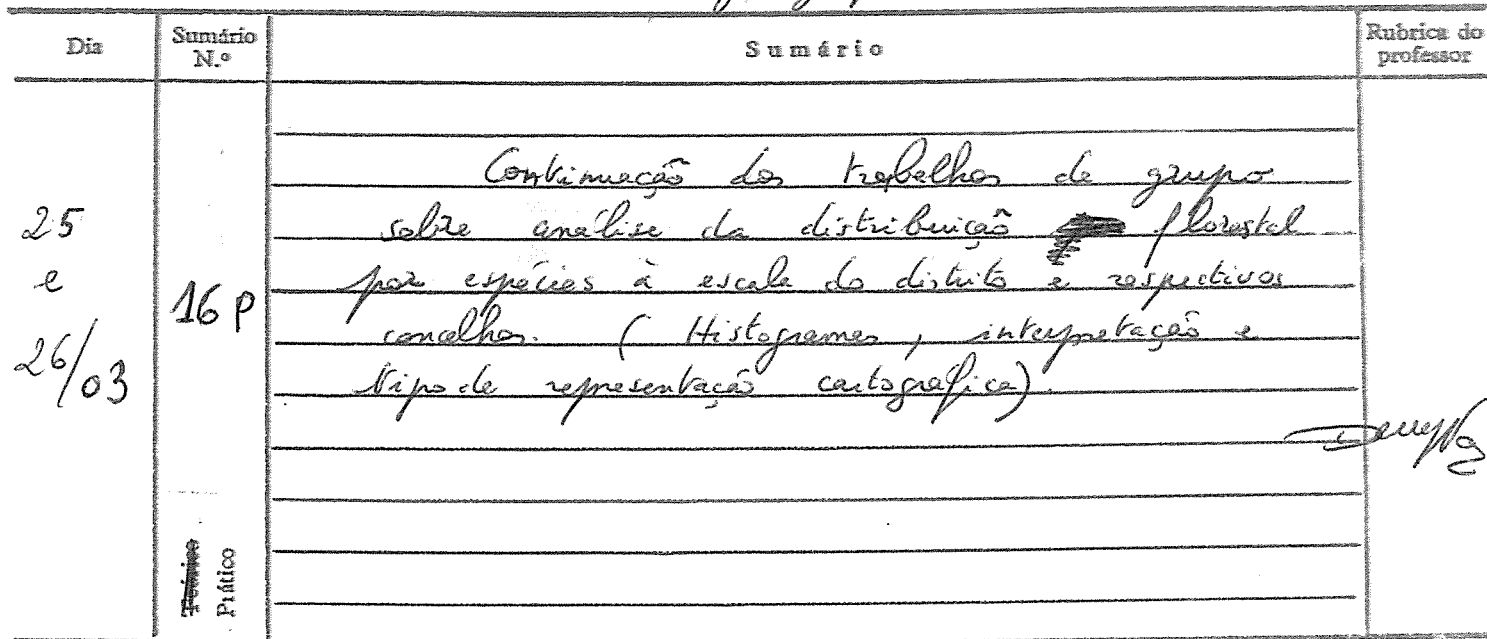 Dia
Sumário N.º
Sumário
Rubrica do professor
25
e
26/03
16 P
Continuação dos trabalhos de grupo
sobre análise da distribuição florestal
por espécies à escala do distrito e respectivos
concelhos. ( Histogramas, interpretação e
tipo de representação cartográfica).
Teórico
Prático